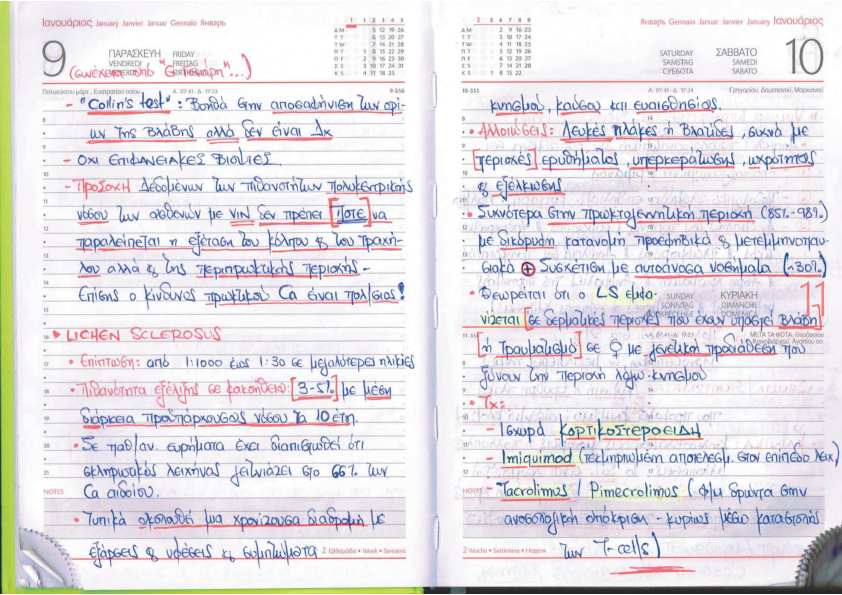 Ιανουάριος January Janvier Januar Gennaio Январь
9
ΠΑΡΑΣΚΕΥΗ FRIDAY
VENDREDI FREITAG
(συνέχεια από "6 Γενάρη"...)
Πολυεύκτου μάρτ., Ευστρατίου οσίου Α. 07:41 - Δ. 17:23 9-356
- "Collin's test": Βοηθά στην αποσαφήνιση των ορί-
ων της βλάβης αλλά δεν είναι Δx
- Όχι επιφανειακές βιοψίες.
- Προσοχή Δεδομένων των πιθανοτήτων πολυκεντρικής
νόσου των ασθενών με VIN δεν πρέπει [ποτέ] να
παραλείπεται η εξέταση του κόλπου & του τραχή-
λου αλλά & της περιπρωκτικής περιοχής -
Επίσης ο κίνδυνος πρωκτικού Ca είναι πολ/σιος!
LICHEN SCLEROSUS
• Επίπτωση: από 1:1000 έως 1:30 σε μεγαλύτερες ηλικίες
• Πιθανότητα εξέλιξης σε κακοήθεια: [3-5%] με μέση
διάρκεια προϋπάρχουσας νόσου τα 10 έτη.
• Σε παθ/αν. ευρήματα έχει διαπιστωθεί ότι
σκληρωτικός λειχήνας γειτνιάζει στο 66% των
Ca αιδοίου.
NOTES
• Τυπικά ακολουθεί μια χρονίζουσα διαδρομή με
εξάρσεις & υφέσεις κ συμπτώματα
2 Εβδομάδα • Week • Semaine
Январь Gennaio Januar Janvier January Ιανουάριος
SATURDAY ΣΑΒΒΑΤΟ
SAMSTAG SAMEDI
СУББОТА SABATO
10
10-355 Α. 07:41 - Δ. 17:23 Γρηγορίου, Δομετιανού, Μαρκιανού
κνησμού, καύσου και ευαισθησίας.
• Αλλοιώσεις: Λευκές πλάκες ή βλατίδες, συχνά με
[περιοχές] ερυθήματος, υπερκεράτωσης, ωχρότητος
& εξέλκωσης
• Συχνότερα στην πρωκτογεννητική περιοχή (85%-98%)
με δικόρυφη κατανομή προεφηβικά & μετεμμηνοπαυ-
σιακά ⊕ Συσχέτιση με αυτοάνοσα νοσήματα (~30%)
SUNDAY ΚΥΡΙΑΚΗ
SONNTAG DIMANCHE
DOMENICA
11
• Θεωρείται ότι ο LS εμφα-
νίζεται [σε δερματικές περιοχές που έχουν υποστεί βλάβη]
ΜΕΤΑ ΤΑ ΦΩΤΑ, Θεοδοσίου
[ή τραυματισμό] σε ♀ με γενετική προδιάθεση που
ξύνουν την περιοχή λόγω κνησμού
• Tx:
- Ισχυρά κορτικοστεροειδή
- Imiquimod (τεκμηριωμένη αποτελεσμ. στον επίπεδο λειχ.)
NOTES
- Tacrolimus / Pimecrolimus (φμ δρώντα στην
ανοσολογική απόκριση - κυρίως μέσω καταστολής
των T-cells)
2 Woche • Settimana • Неделя